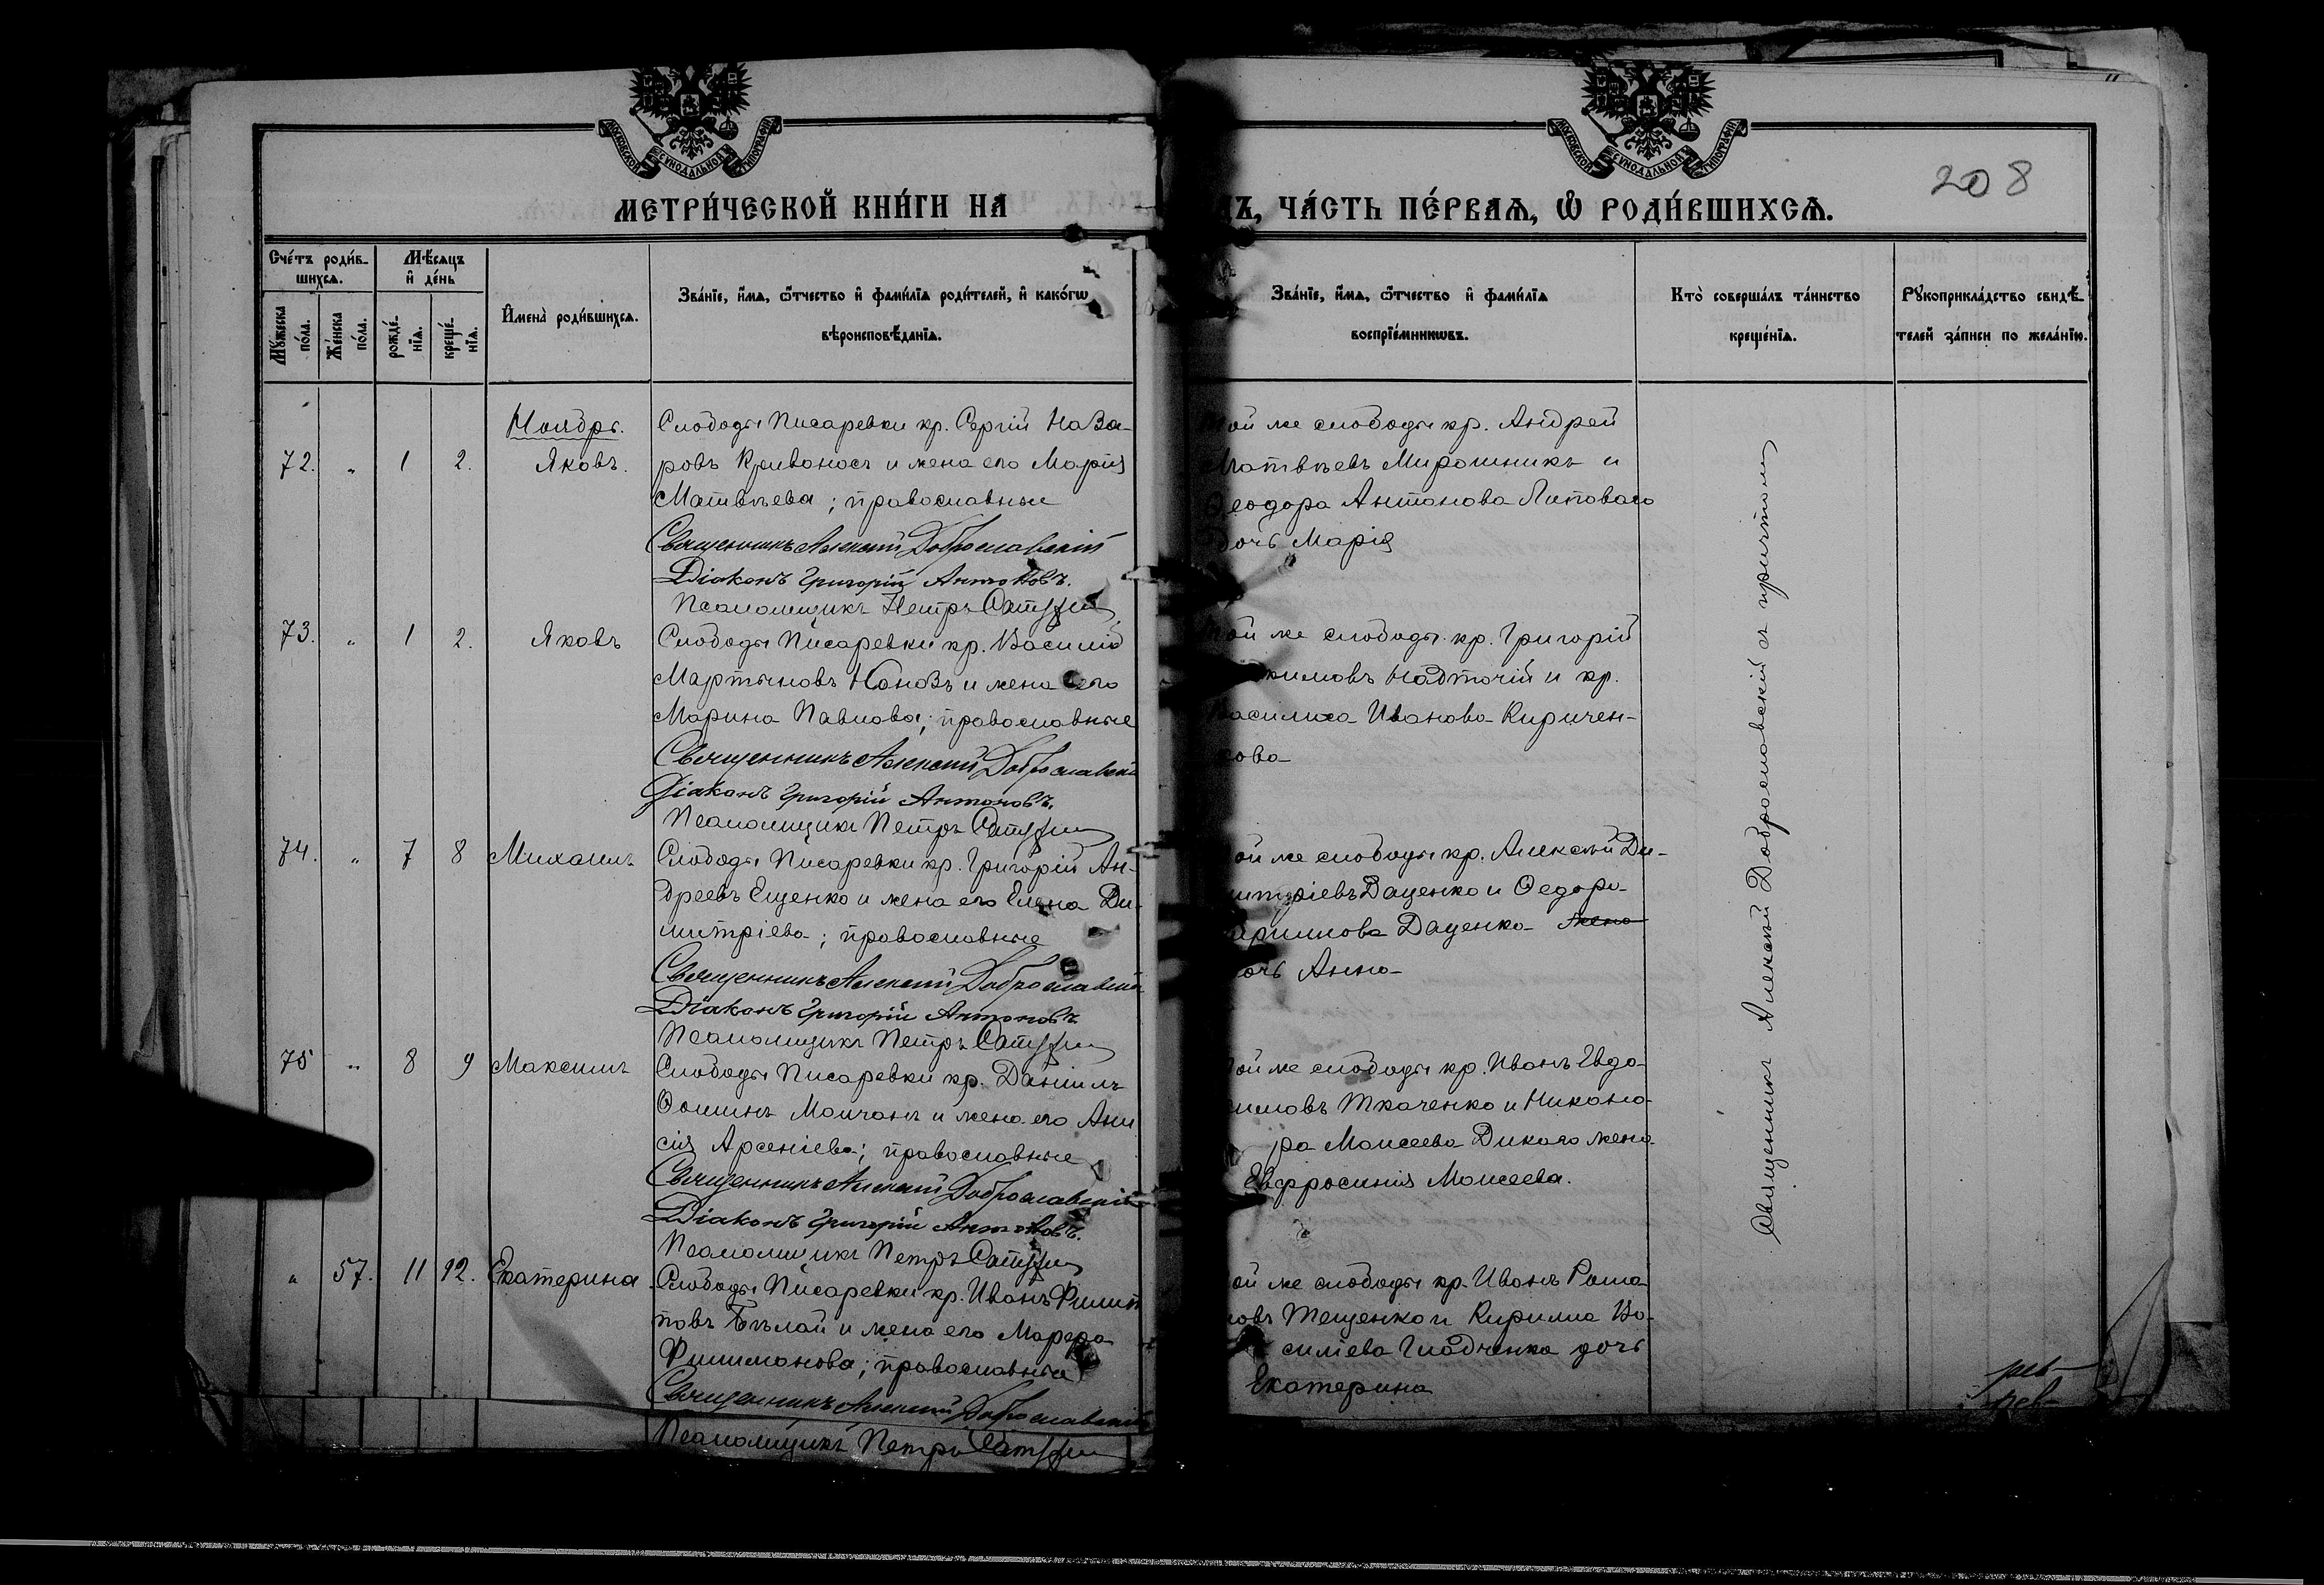 МОСКОВСКОЙ СѴНОДАЛЬНОЙ ТИПОГРАФІИ
МОСКОВСКОЙ СѴНОДАЛЬНОЙ ТИПОГРАФІИ
208
МЕТРИ́ЧЕСКОЙ КНИ́ГИ НА
Ъ, ЧА́СТЬ ПЕ́РВАѦ, Ѡ҆ РОДИ́ВШИХСѦ.
Счéтъ роди́в-
шихсѧ.
Мѣ́сѧцъ
и҆ де́нь
Мꙋ́жеска
по́ла.
Же́нска
по́ла.
рожде́-
нїѧ.
креще́-
нїѧ.
И҆мена̀ роди́вшихсѧ.
Зва́нїе, и҆́мѧ, ѻ҆́тчество и҆ фами́лїѧ роди́телей, и҆ како́гѡ
вѣроисповѣ́данїѧ.
Зва́нїе, и҆́мѧ, ѻ҆́тчество и҆ фами́лїѧ
воспрїе́мникѡвъ.
Кто̀ соверша́лъ та́инство
креще́нїѧ.
Рꙋкоприкла́дство свидѣ́-
телей за́писи по жела́нїю.
Ноябрь.
72. " 1 2. Яковъ.
Слободы Писаревки кр. Сергій Наза-
ровъ Кривоносъ и жена его Марія
Матвѣева; православные
Священникъ Алексій Доброславскій
Діаконъ Григорій Антоновъ.
Псаломщикъ Петръ
ой же слободы кр. Андрей
Матвѣевъ Мирошникъ и
Ѳеодора Антонова Липоваго
дочь Марія
73. " 1 2. Яковъ
Слободы Писаревки кр. Василій
Мартыновъ и жена его
Марина Павлова; православные
Священникъ Алексій Доброславскій
Діаконъ Григорій Антоновъ.
Псаломщикъ Петръ
ой же слободы кр. Григорій
кимовъ Надточій и кр.
Василиса Иванова Киричен-
кова
74. " 7 8 Михаилъ
Слободы Писаревки кр. Григорій Ан-
дреевъ Ещенко и жена его Елена Ди-
митріева; православные
Священникъ Алексій Доброславскій
Діаконъ Григорій Антоновъ
Псаломщикъ Петръ
ой же слободы кр. Алексѣй Ди-
митріевъ Даценко и Ѳедора
Даценко жена
очь Анна
75 " 8 9 Максимъ
Слободы Писаревки кр. Даніилъ
Ѳоминъ Молчанъ и жена его Ани
сія Арсеніева; православные
Священникъ Алексій Доброславскій
Діаконъ Григорій Антоновъ.
Псаломщикъ Петръ
ой же слободы кр. Иванъ Евдо-
кимовъ Ткаченко и Никано-
ра Моисеева Дикого жена
Евфросинія Моисеева.
" 57. 11 12. Екатерина
Слободы Писаревки кр. Иванъ Филип
повъ Бѣлай и жена его Марѳа
Филимонова; православные
Священникъ Алексій Доброславскій
Псаломщикъ Петръ
ой же слободы кр. Иванъ Рома
новъ Тещенко и Кирилла Ва-
силіева Гладченка дочь
Екатерина
Священникъ Алексій Доброславскій съ причтомъ